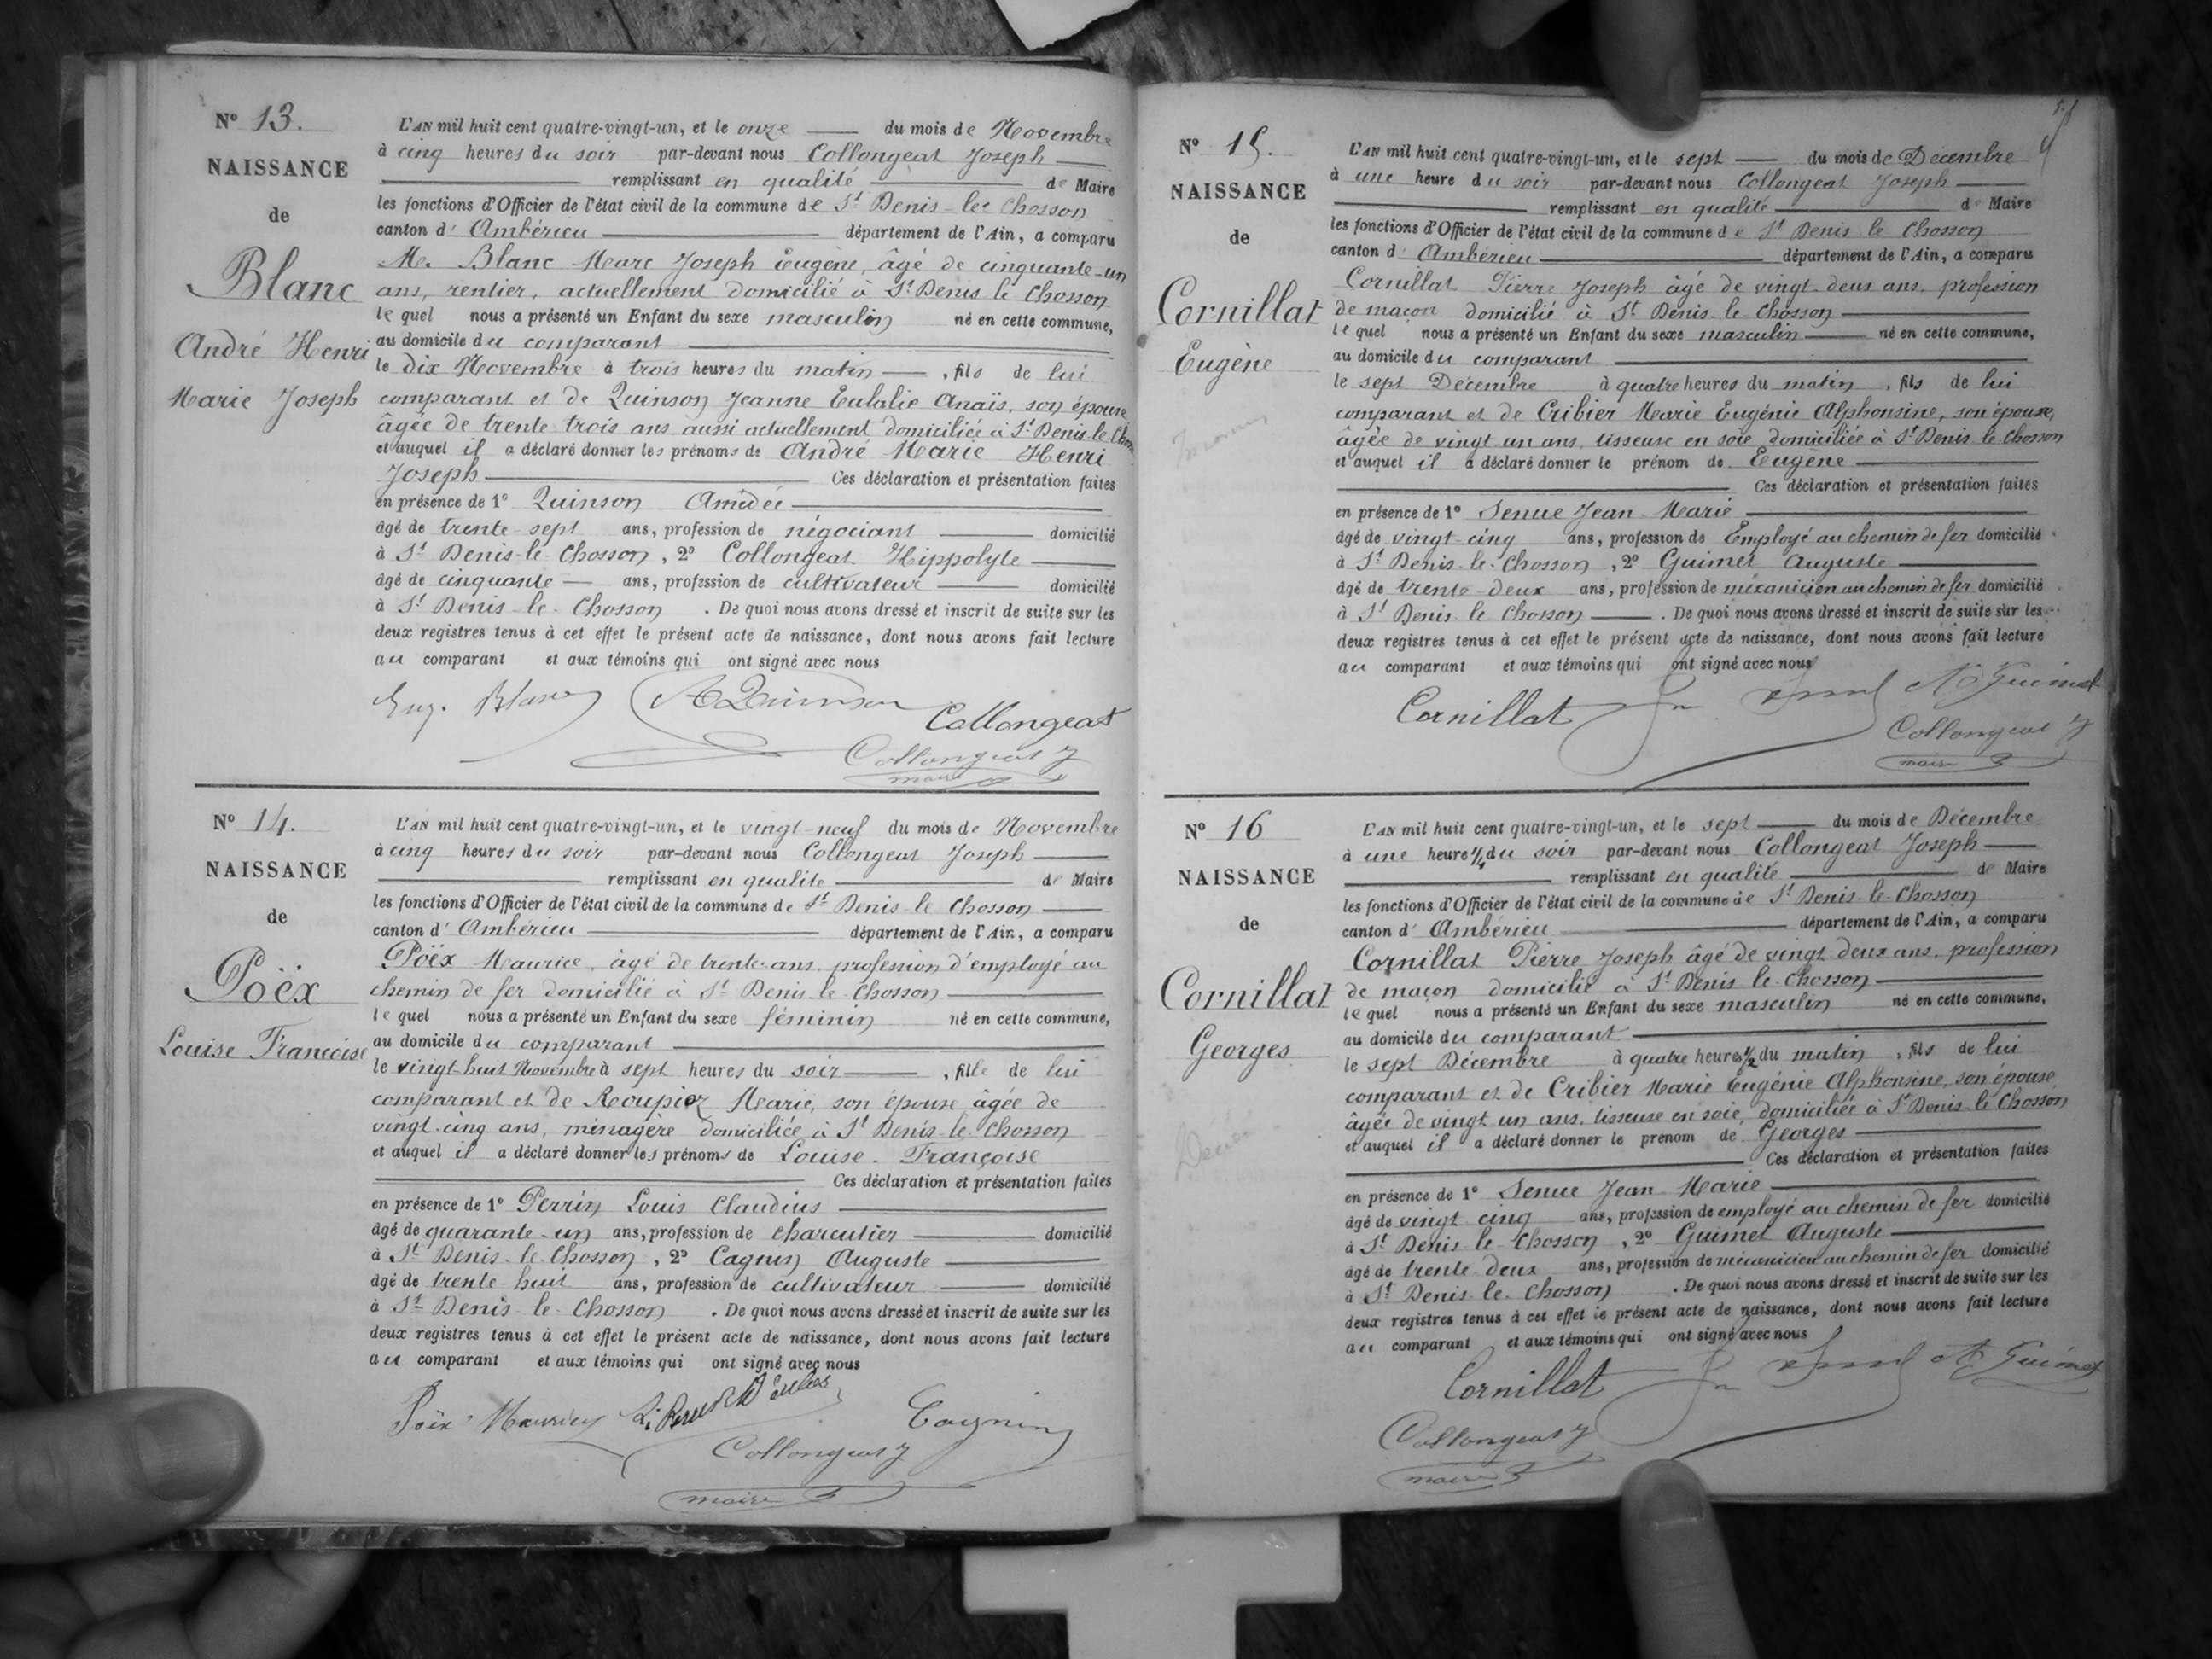 N° 13.
NAISSANCE
de
Blanc
André Henri
Marie Joseph
L'AN mil huit cent quatre-vingt-un, et le onze du mois de Novembre
à cinq heures du soir par-devant nous Collongeat Joseph
remplissant en qualité de Maire
les fonctions d'Officier de l'état civil de la commune de St Denis-le-Chosson
canton d'Ambérieu département de l'Ain, a comparu
M. Blanc Marc Joseph Eugène, âgé de cinquante-un
ans, rentier, actuellement domicilié à St Denis le Chosson
lequel nous a présenté un Enfant du sexe masculin né en cette commune,
au domicile du comparant
le dix Novembre à trois heures du matin, fils de lui
comparant et de Quinson Jeanne Eulalie Anaïs, son épouse
âgée de trente trois ans aussi actuellement domiciliée à St Denis-le-Chosson
et auquel il a déclaré donner les prénoms de André Marie Henri
Joseph Ces déclaration et présentation faites
en présence de 1° Quinson Amédée
âgé de trente-sept ans, profession de négociant domicilié
à St Denis-le-Chosson, 2° Collongeat Hippolyte
âgé de cinquante ans, profession de cultivateur domicilié
à St Denis-le-Chosson. De quoi nous avons dressé et inscrit de suite sur les
deux registres tenus à cet effet le présent acte de naissance, dont nous avons fait lecture
au comparant et aux témoins qui ont signé avec nous
Eug. Blanc A Quinson Collongeat
Collongeat J
maire
N° 14.
NAISSANCE
de
Poëx
Louise Francoise
L'AN mil huit cent quatre-vingt-un, et le vingt-neuf du mois de Novembre
à cinq heures du soir par-devant nous Collongeat Joseph
remplissant en qualité de Maire
les fonctions d'Officier de l'état civil de la commune de St Denis-le-Chosson
canton d'Ambérieu département de l'Ain, a comparu
Poëx Maurice, âgé de trente ans, profession d'employé au
chemin de fer domicilié à St Denis-le-Chosson
lequel nous a présenté un Enfant du sexe féminin né en cette commune,
au domicile du comparant
le vingt-huit Novembre à sept heures du soir, fille de lui
comparant et de Roupioz Marie, son épouse âgée de
vingt-cinq ans, ménagère domiciliée à St Denis-le-Chosson
et auquel il a déclaré donner les prénoms de Louise Françoise
Ces déclaration et présentation faites
en présence de 1° Perrin Louis Claudius
âgé de quarante-un ans, profession de charcutier domicilié
à St Denis-le-Chosson, 2° Cagnin Auguste
âgé de trente-huit ans, profession de cultivateur domicilié
à St Denis-le-Chosson. De quoi nous avons dressé et inscrit de suite sur les
deux registres tenus à cet effet le présent acte de naissance, dont nous avons fait lecture
au comparant et aux témoins qui ont signé avec nous
Poëx Maurice Cagnin
Collongeat J
maire
N° 15.
NAISSANCE
de
Cornillat
Eugène
L'AN mil huit cent quatre-vingt-un, et le sept du mois de Décembre
à une heure du soir par-devant nous Collongeat Joseph
remplissant en qualité de Maire
les fonctions d'Officier de l'état civil de la commune de St Denis le Chosson
canton d'Ambérieu département de l'Ain, a comparu
Cornillat Pierre Joseph âgé de vingt-deux ans, profession
de maçon domicilié à St Denis-le-Chosson
lequel nous a présenté un Enfant du sexe masculin né en cette commune,
au domicile du comparant
le sept Décembre à quatre heures du matin, fils de lui
comparant et de Cribier Marie Eugénie Alphonsine, son épouse,
âgée de vingt un ans, tisseuse en soie, domiciliée à St Denis-le-Chosson
et auquel il a déclaré donner le prénom de Eugène
Ces déclaration et présentation faites
en présence de 1° Senue Jean-Marie
âgé de vingt-cinq ans, profession de Employé au chemin de fer domicilié
à St Denis-le-Chosson, 2° Guimet Auguste
âgé de trente-deux ans, profession de mécanicien au chemin de fer domicilié
à St Denis-le-Chosson. De quoi nous avons dressé et inscrit de suite sur les
deux registres tenus à cet effet le présent acte de naissance, dont nous avons fait lecture
au comparant et aux témoins qui ont signé avec nous
Cornillat A Guimet
Collongeat J
maire
N° 16
NAISSANCE
de
Cornillat
Georges
L'AN mil huit cent quatre-vingt-un, et le sept du mois de Décembre
à une heure 1/4 du soir par-devant nous Collongeat Joseph
remplissant en qualité de Maire
les fonctions d'Officier de l'état civil de la commune de St Denis-le-Chosson
canton d'Ambérieu département de l'Ain, a comparu
Cornillat Pierre Joseph âgé de vingt deux ans, profession
de maçon domicilié à St Denis-le-Chosson
lequel nous a présenté un Enfant du sexe masculin né en cette commune,
au domicile du comparant
le sept Décembre à quatre heures 1/2 du matin, fils de lui
comparant et de Cribier Marie Eugénie Alphonsine, son épouse
âgée de vingt un ans, tisseuse en soie, domiciliée à St Denis-le-Chosson
et auquel il a déclaré donner le prénom de Georges
Ces déclaration et présentation faites
en présence de 1° Senue Jean-Marie
âgé de vingt cinq ans, profession de employé au chemin de fer domicilié
à St Denis-le-Chosson, 2° Guimet Auguste
âgé de trente deux ans, profession de mécanicien au chemin de fer domicilié
à St Denis-le-Chosson. De quoi nous avons dressé et inscrit de suite sur les
deux registres tenus à cet effet le présent acte de naissance, dont nous avons fait lecture
au comparant et aux témoins qui ont signé avec nous
Cornillat A Guimet
Collongeat J
maire